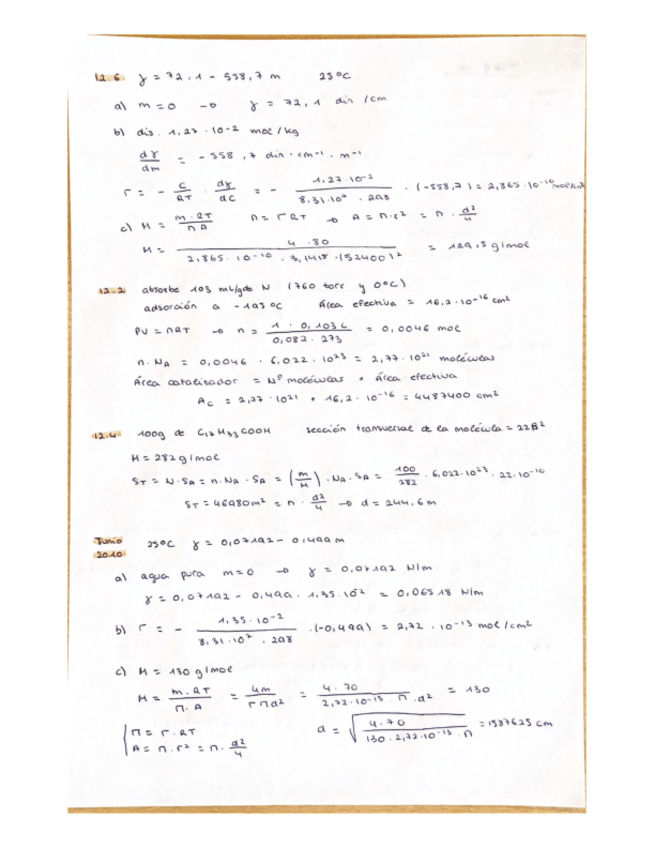 12.6 γ = 72,1 - 558,7 m 25ºC
a) m = 0 → γ = 72,1 din/cm
b) dis. 1,27·10-2 mol/kg
dγ/dm = -558,7 din·cm-1·m-1
Γ = - C/RT · dγ/dC = - 1,27·10-2 / 8,31·10⁷·298 · (-558,7) = 2,865·10-10 mol/cm²
c) M = m·RT / Π A Π = Γ RT → A = π·r² = π · d²/4
M = 4·80 / 2,865·10-10·3,1415·(52400)² = 129,5 g/mol
12.2 absorbe 103 mL/gde N (760 torr y 0ºC)
adsorción a -195ºC Área efectiva = 16,2·10-16 cm²
PV = nRT → n = 1·0,103L / 0,082·273 = 0,0046 mol
n·NA = 0,0046 · 6,022·10²³ = 2,77·10²¹ moléculas
Área catalitador = Nº moléculas · Área efectiva
Ac = 2,77·10²¹ · 16,2·10-16 = 4487400 cm²
12.4 100g de C17H33COOH sección tramversal de la molécula = 22Å²
M = 282 g/mol
ST = N·SA = n·NA·SA = (m/M)·NA·SA = 100/282 · 6,022·10²³ · 22·10-10
ST = 46980m² = π · d²/4 → d = 244,6 m
Junio 2010 25ºC γ = 0,07192 - 0,499 m
a) agua pura m=0 → γ = 0,07192 N/m
γ = 0,07192 - 0,499 · 1,35·10² = 0,06518 N/m
b) Γ = - 1,35·10-2 / 8,31·10⁷·298 · (-0,499) = 2,72·10-13 mol/cm²
c) M = 130 g/mol
M = m·RT / Π·A = 4m / Γπd² = 4·70 / 2,72·10-13·π·d² = 130
Π = Γ·RT d = √(4·70 / 130·2,72·10-13·π) = 1587625 cm
A = π·r² = π · d²/4